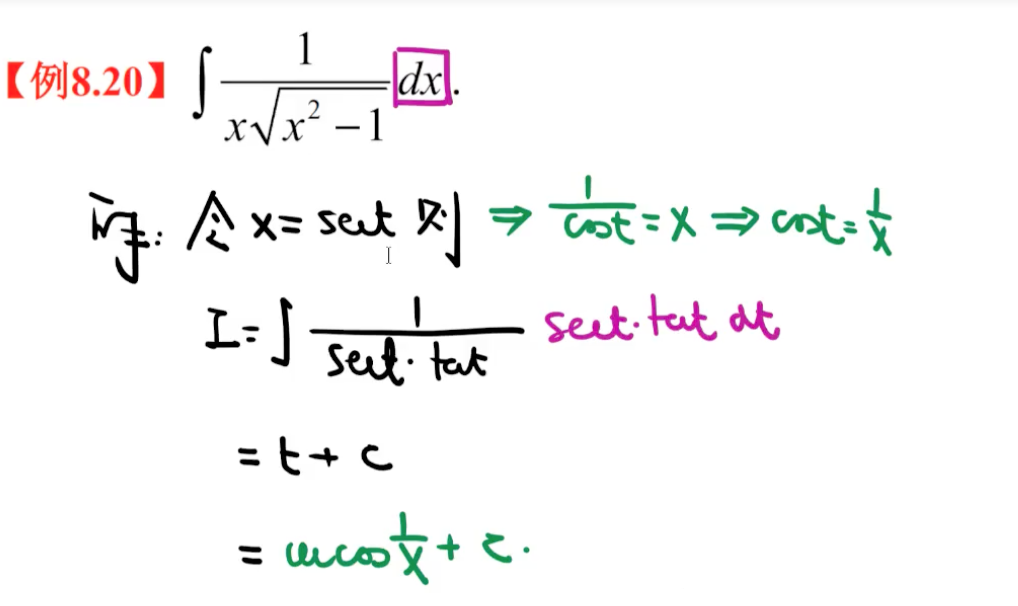 【例8.20】 ∫ 1/(x√(x² − 1)) dx.
解: 令 x = sect 则 ⇒ 1/cost = x ⇒ cost = 1/x
I = ∫ 1/(sect · tant) sect · tant dt
= t + c
= arccos 1/x + c.